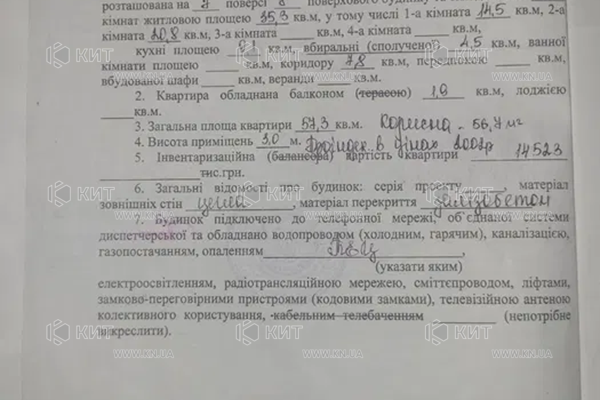 розташована на 7 поверсі 8 поверхового будинку
кімнат житловою площею 35,3 кв.м, у тому числі 1-а кімната 14,5 кв.м, 2-а
кімната 20,8 кв.м, 3-а кімната ____ кв.м, 4-а кімната ____ кв.м,
кухні площею кв.м, вбиральні (сполученої) 4,5 кв.м, ванної
кімнати площею ____ кв.м, коридору 7,8 кв.м, передпокою ____ кв.м,
вбудованої шафи ____ кв.м, веранди ____ кв.м.
2. Квартира обладнана балконом (терасою) 1,9 кв.м, лоджією
____кв.м.
3. Загальна площа квартири 57,3 кв.м. Корисна - 56,7 м²
4. Висота приміщень 3,0 м.
5. Інвентаризаційна (балансова) вартість квартири 14523
____тис.грн.
6. Загальні відомості про будинок: серія проекту____, матеріал
зовнішніх стін цегла, матеріал перекриття залізобетон
7. Будинок підключено до телефонної мережі, об'єднаної системи
диспетчерської та обладнано водопроводом (холодним, гарячим), каналізацією,
газопостачанням, опаленням ____,
(указати яким)
електроосвітленням, радіотрансляційною мережею, сміттєпроводом, ліфтами,
замково-переговірними пристроями (кодовими замками), телевізійною антеною
колективного користування, кабельним телебаченням ____ (непотрібне
вікреслити).
КИТ
WWW.KN.UA